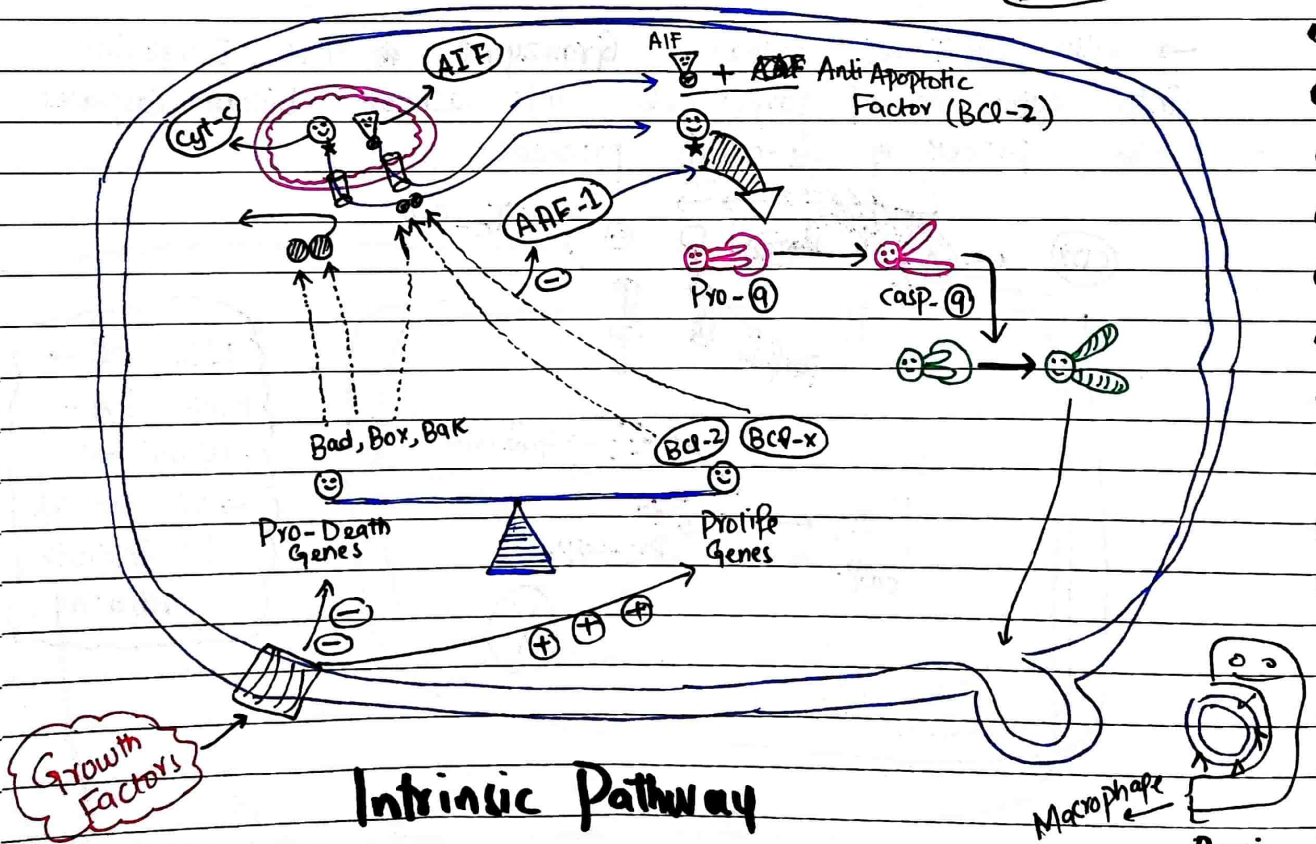 AIF
Cyt-c
AIF
+ Anti Apoptotic
Factor (BCl-2)
AAF-1
−
Pro-9
Casp-9
Bad, Box, Bak
BCl-2
BCl-x
Pro-Death
Genes
Prolife
Genes
−
−
+ + +
Growth
Factors
Intrinsic Pathway
Macrophape